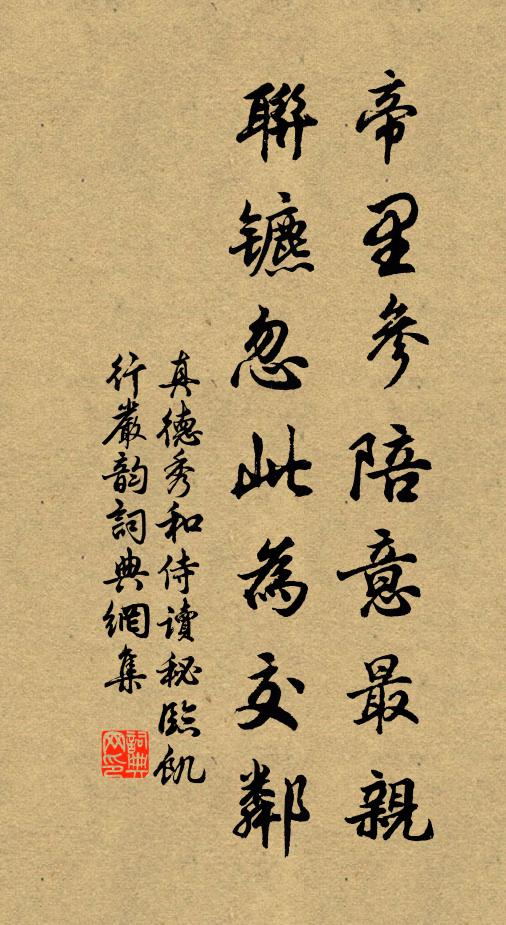 帝里參陪意最親
聯镳忽此為交鄰
真德秀和侍讀秘臨飢
行嚴韵詞典網集
詞典网印